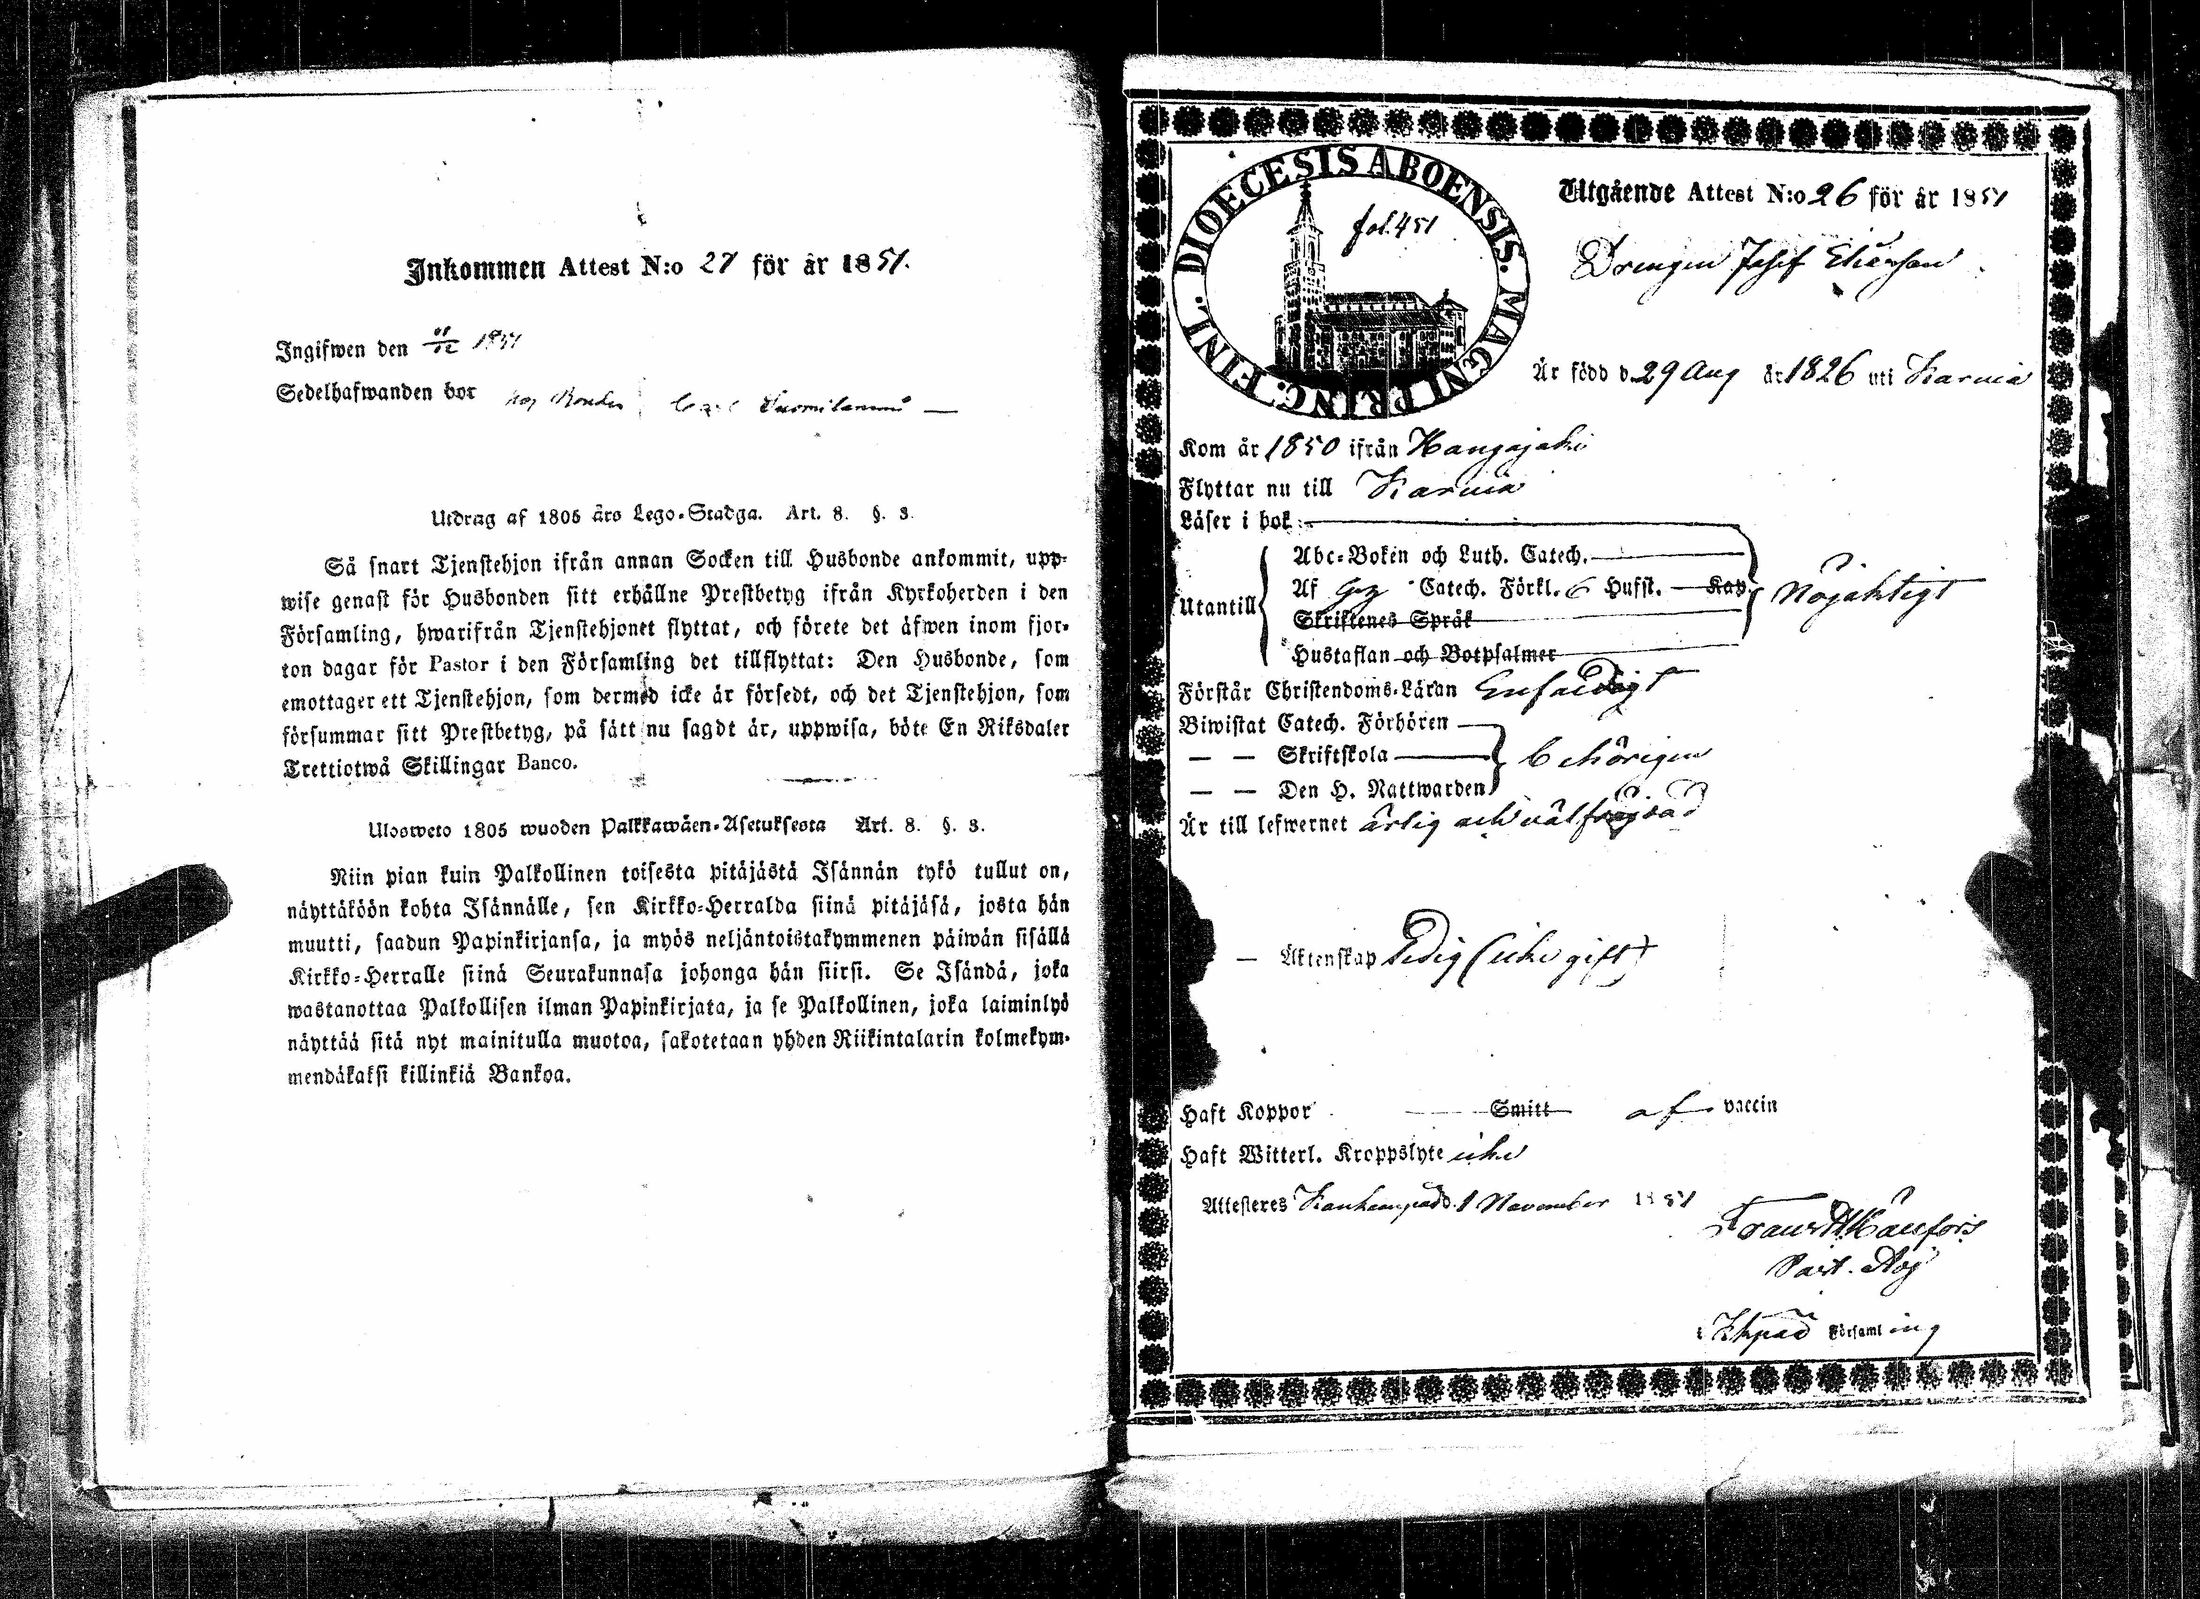 Inkommen Attest N:o 27 för år 1851.
Ingifwen den 11/12 1851
Sedelhafwanden bor hos Bonden
Utdrag af 1805 års Lego-Stadga. Art. 8. §. 3.
Så snart Tjenstehjon ifrån annan Socken till Husbonde ankommit, upp-
wise genast för Husbonden sitt erhållne Prestbetyg ifrån Kyrkoherden i den
Församling, hwarifrån Tjenstehjonet flyttat, och förete det äfwen inom fjor-
ton dagar för Pastor i den Församling det tillflyttat: Den Husbonde, som
emottager ett Tjenstehjon, som dermed icke är försedt, och det Tjenstehjon, som
försummar sitt Prestbetyg, på sätt nu sagdt är, uppwisa, böte En Riksdaler
Trettiotwå Skillingar Banco.
Ulosweto 1805 wuoden Palkkawäen-Asetuksesta Art. 8. §. 3.
Niin pian kuin Palkollinen toisesta pitäjästä Isännän tykö tullut on,
näyttäköön kohta Isännälle, sen Kirkko-Herralda siinä pitäjäsä, josta hän
muutti, saadun Papinkirjansa, ja myös neljäntoistakymmenen päiwän sisällä
Kirkko-Herralle siinä Seurakunnasa johonga hän siirsi. Se Isändä, joka
wastanottaa Palkollisen ilman Papinkirjata, ja se Palkollinen, joka laiminlyö
näyttää sitä nyt mainitulla muotoa, sakotetaan yhden Riikintalarin kolmekym-
mendäkaksi killinkiä Bankoa.
DIOECESIS ABOENSIS. MAGNI PRINC. FINL.
fol. 451
Utgående Attest N:o 26 för år 1851
Drengen Josif Eliasson
Är född d. 29 Aug år 1826 uti Karvia
Kom år 1850 ifrån Kangasjoki
Flyttar nu till Karvia
Läser i bok
Abc-Boken och Luth. Catech.
Utantill Af Catech. Förkl. 6 Hufst. Kap. Nöjaktigt
Skriftenes Språk
Hustaflan och Botpsalmer
Förstår Christendoms-Läran Enfaldigt
Biwistat Catech. Förhören
— — Skriftskola behörigen
— — Den H. Nattwarden
Är till lefwernet ärlig och välfrägdad
— Äktenskap Ledig (icke gift)
Haft Koppor Smitt af vaccin
Haft Witterl. Kroppslyte icke
Attesteres Kankaanpää d. 1 November 1851
Past. Adj
i Kkpää Församling